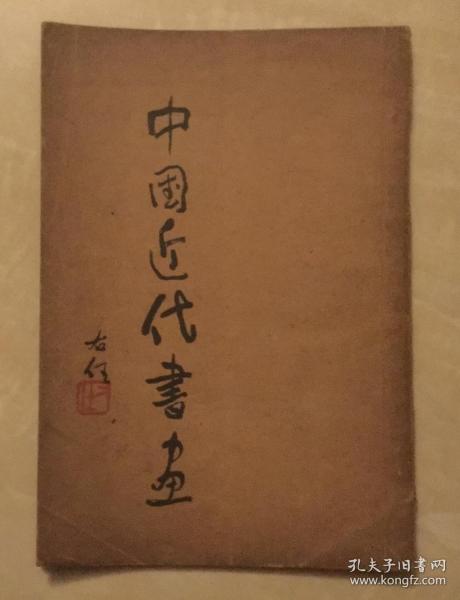 中国近代書画
右任
孔夫子旧书网
www.kongfz.com